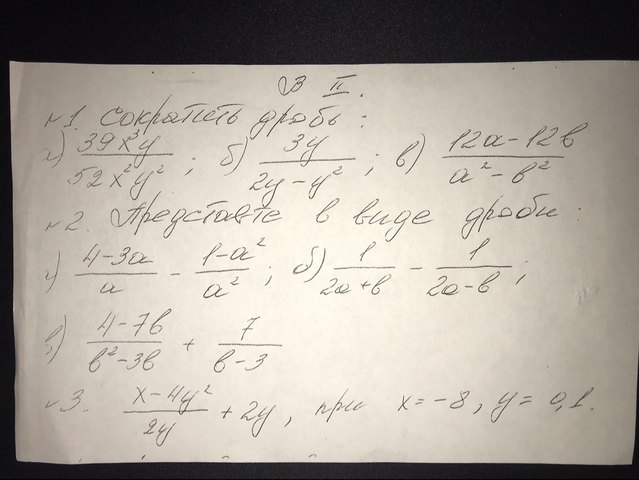 В II.
№1. Сократить дробь:
а) 39x³y/52x²y²; б) 3y/2y-y²; в) 12a-12b/a²-b²
№2. Представте в виде дроби:
а) 4-3a/a - 1-a²/a²; б) 1/2a+b - 1/2a-b;
в) 4-7b/b²-3b + 7/b-3
№3. x-4y²/2y + 2y, при x=-8, y=0,1.